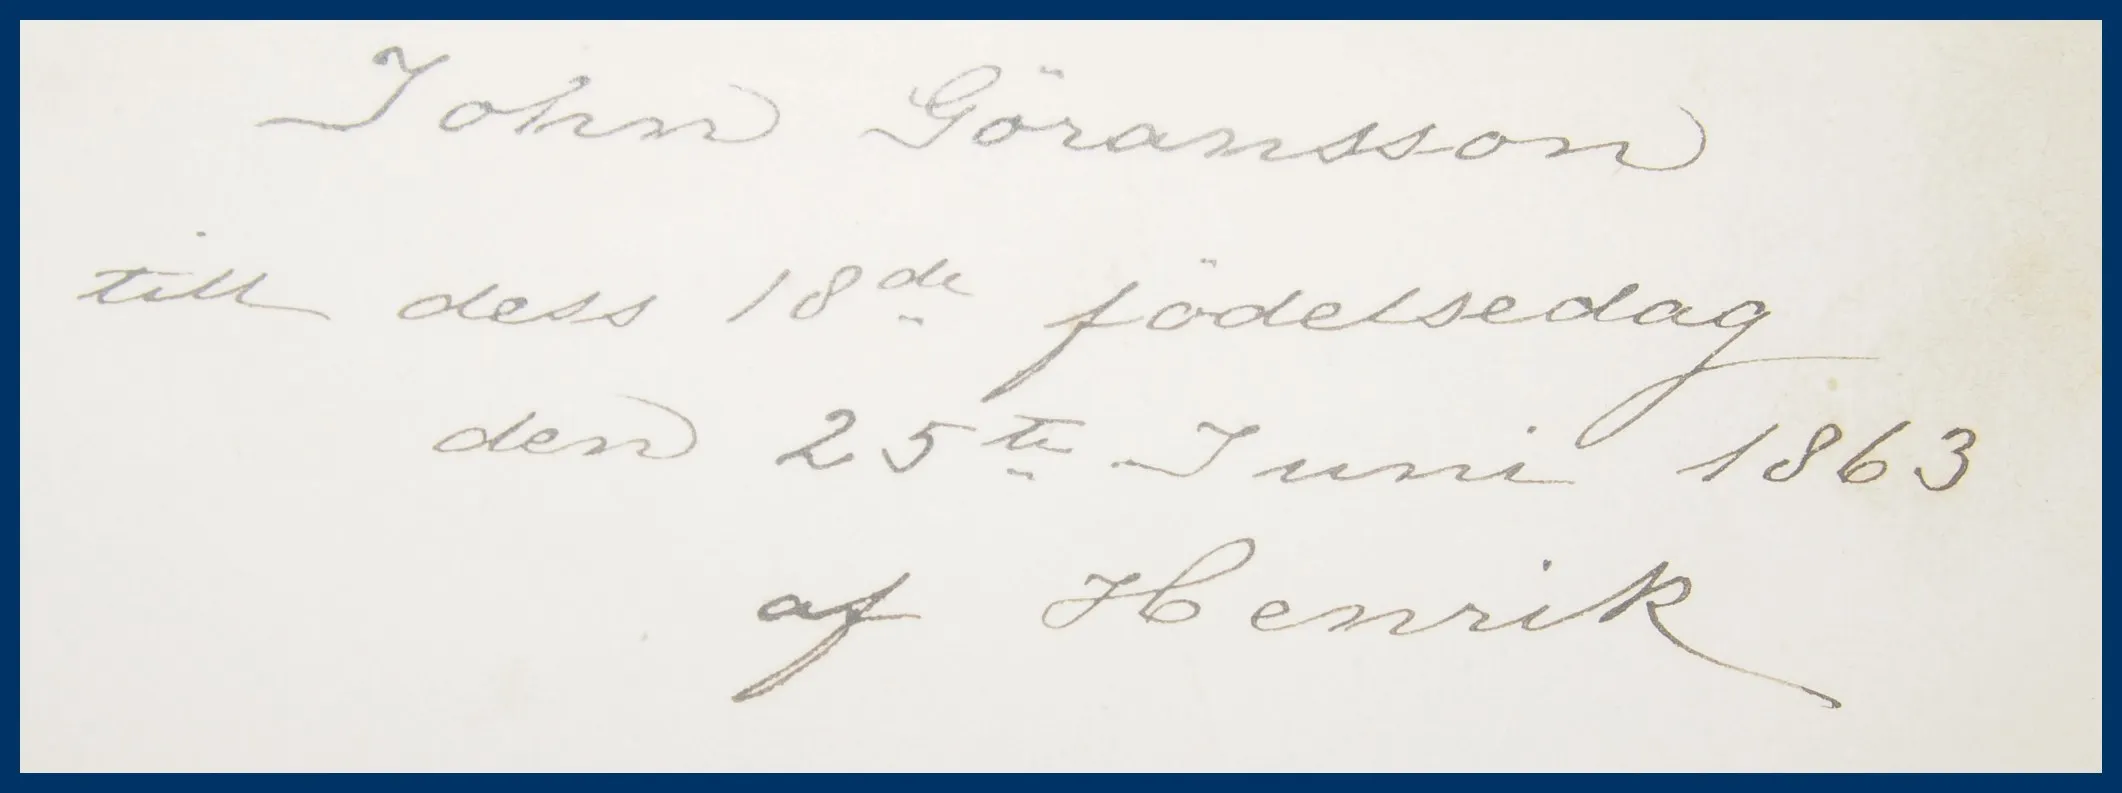 John Göransson
till dess 18de födelsedag
den 25te Juni 1863
af Henrik